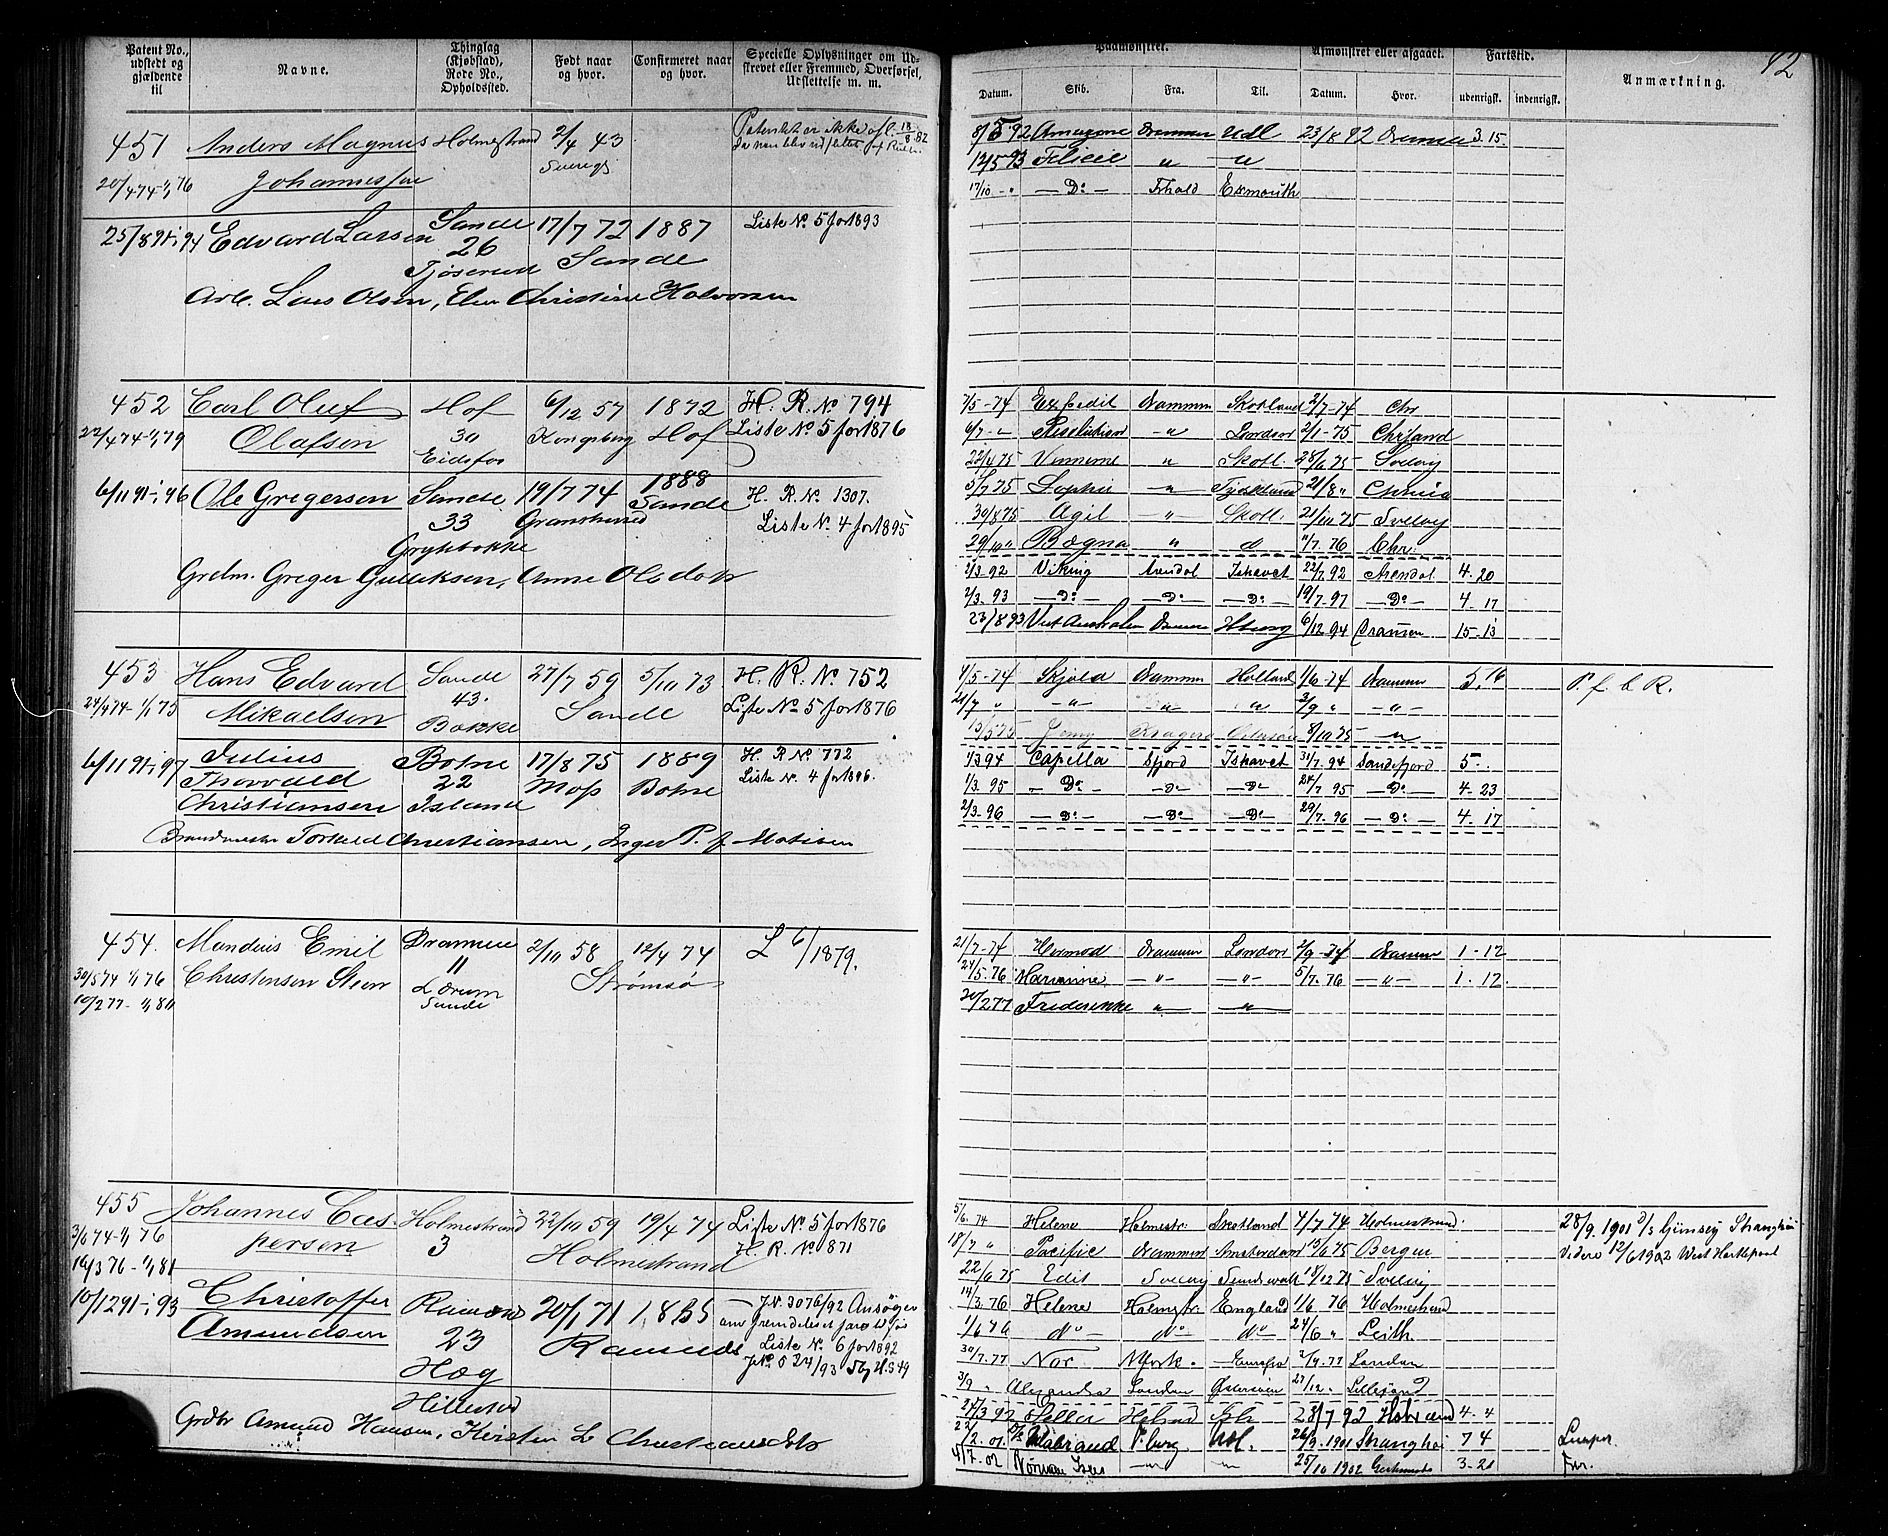 Patent No., udstedt og gjældende til
Navne.
Thinglag (Kjøbstad), Rode No., Opholdssted.
Født naar og hvor.
Confirmeret naar og hvor.
Specielle Oplysninger om Udskrevet eller Fremmed, Overførsel, Udslettelse m. m.
451 Anders Magnus Holmestrand 2/4 43
20/4 74 - 1/1 76 Johannessen
25/8 91 - 1/1 94 Edvard Larsen Sande 17/7 72 1887 Liste No. 5 for 1893
26
Tjøserud Sande
Arb. Lars Olsen, Christine Halvorsen
452 Carl Oluf Hof 6/12 57 1872 H. R. No 794
22/4 74 - 1/1 79 Olafsen 30 Kongsberg Hof Liste No. 5 for 1876
Eidsfos
6/11 91 - 1/1 96 Ole Gregersen Sande 19/7 74 1888 H. R. No. 1307.
33 Sande Liste No. 4 for 1895
Grdm. Greger Gulliksen, Anne Olsdatr
453 Hans Edvard Sande 27/7 59 5/10 73 H. R. No. 752
24/4 74 - 1/1 75 Mikaelsen 43. Sande Liste No. 5 for 1876
Bakke
6/11 91 - 1/1 97 Julius Botne 17/8 75 1889 H. R. No 772
Thorvald 22 Moss Botne Liste No. 4 for 1896.
Christiansen Island
Torkild Christiansen, Inger P. f. Matisen
454. Mandius Emil Drammen 2/10 58 12/4 74 L 6/1879.
30/5 74 1/1 76 Christensen Steen 11 Strømsø
10/2 77 - 1/1 80 Sande
455 Johannes Cas- Holmestrand 22/10 59 19/4 74 Liste No. 5 for 1876
3/6 74 - 1/1 76 persen 3 Holmestrand H. R. No 871
16/3 76 - 1/1 81
10/12 91 - 1/1 93 Christoffer Ramnes 20/1 71 1885 J.No. 3076/92 Ansøger
Amundsen 23 Ramnes
Haeg Liste No. 6 for 1892
Hillestad
Grdbr Amund Hansen, Kirsten L Christiansdtr
92
Paamønstret.
Afmønstret eller afgaaet.
Fartstid.
Anmærkning.
Datum. Skib. Fra. Til. Datum. Hvor. udenrigsk. indenrigsk.
8/5 92 Amazone Drammen Udl 23/8 92 Drammen 3.15
12/5 93 Felicie " "
17/10 - " - Do - Fhald Exmouth
7/5 - 74 Expedit Drammen Skotland 2/7 - 74 Chr
6/7 - " Resolution - " London 2/1 - 75 Chrsand
22/4 75 " Skotl. 28/6 75 Svelvig
5/7 75 Sophie - " Tydskland 21/8 " Chrnia
30/8 75 Agil - " - Skotl. 21/10 75 Svelvig
29/10 " Bægna " d 11/7. 76 Chr.
2/3 92 Viking Arendal Ishavet 22/7 92 Arendal 4. 20
2/3. 93 - Do - - Do - - Do - 19/7. 97 - Do - 4. 17
23/8 93 Vest Australien Drammen Hburg 6/12 94 Drammen 15-13
4/5 - 74 Skjold Drammen Holland 1/6 - 74 Drammen 3.16 P. f. b R.
21/7 " - " - " " 3/9 " - " -
13/5 75 Jenny Kragerø 8/10 75 - "
4/3 94 Capella Sfjord Ishavet 31/7. 94 Sandefjord 5 -
1/3. 95 - Do - - Do - - Do - 24/7 95 - Do - 4- 23
2/3. 96 - Do - - Do - - Do - 29/7. 96 - Do - 4. 17
21/7 - 74 Hermod Drammen London 2/9 - 74 Drammen 1 - 12
24/5. 76 Marianne - " - - " - 5/7. 76 - " - 1 - 12.
20/2 77 Frederikke " "
5/6. 74 Helene Holmestr. Skotland 4/7 74 Holmestrand. 28/9. 1901 Gimsøy Shanghai
18/7 " Pacific Drammen Amsterdam 13/6 75 Bergen 12/6 1902 West Hartlepool
22/6 75 Edit Svelvig Sundsvall 18/12 75 Svelvig
14/3. 76 Helene Holmestr. England 1/6 76 Holmestrand
1/6 76 do - do do 24/6 " Leith
30/7. 77 Nor Europa 2/9. 77 London
3/9 " Alexandra London Østersøen 27/12. Lillesand
24/3 92 28/7 92 Hstrand 4. 4
22/2. 01. 26/9. 1901 Shanghai 7 4 Lemper
4/7. 02 Norman Isles - " - - " 25/10 1902 3 - 21 Fyr.